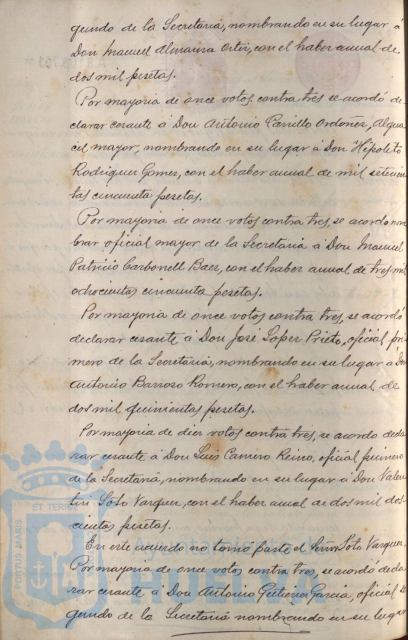 gundo de la Secretaria, nombrando en su lugar á
Don Manuel Almaina Ortiz, con el haber anual de
dos mil pesetas.
Por mayoria de once votos contra tres se acordó de
clarar cesante á Don Antonio Carrillo Ordoñez, Algua
cil mayor, nombrando en su lugar á Don Hipolito
Rodriguez Gomez, con el haber anual de mil setecien
tas cincuenta pesetas.
Por mayoria de once votos contra tres, se acordo nom
brar oficial mayor de la Secretaria á Don Manuel
Patricio Carbonell Baez, con el haber anual de tres mil
ochocientas cincuenta pesetas.
Por mayoria de once votos contra tres, se acordó
declarar cesante á Don José Lopez Prieto, oficial pri
mero de la Secretaria, nombrando en su lugar á Don
Antonio Barroso Romero, con el haber anual de
dos mil quinientas pesetas.
Por mayoria de diez votos contra tres, se acordo decla
rar cesante á Don Luis Camero Reino, oficial primero
de la Secretaria, nombrando en su lugar á Don Valen
tin Soto Vazquez, con el haber anual de dos mil dos
cientas pesetas.
En este acuerdo no tomo parte el Señor Soto Vazquez.
Por mayoria de once votos contra tres, se acordó decla
rar cesante á Don Antonio Gutierrez Garcia, oficial se
gundo de la Secretaria nombrando en su lugar
PORTUS MARIS
ET TERRAE
HUELVA